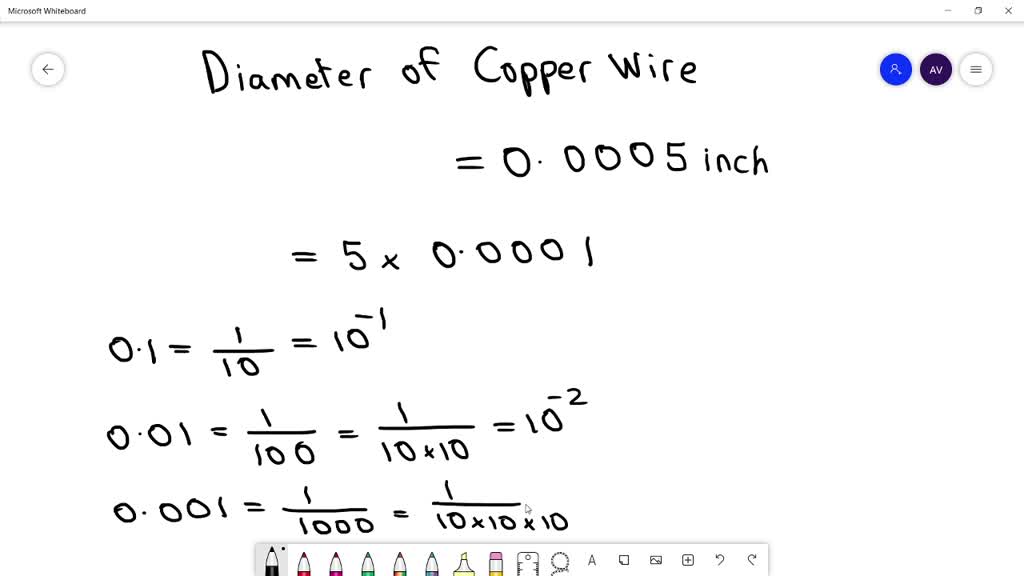 Microsoft Whiteboard
AV
Diameter of Copper Wire
= 0.0005 inch
= 5 × 0.0001
0.1 = 1/10 = 10⁻¹
0.01 = 1/100 = 1/10×10 = 10⁻²
0.001 = 1/1000 = 1/10×10×10
A